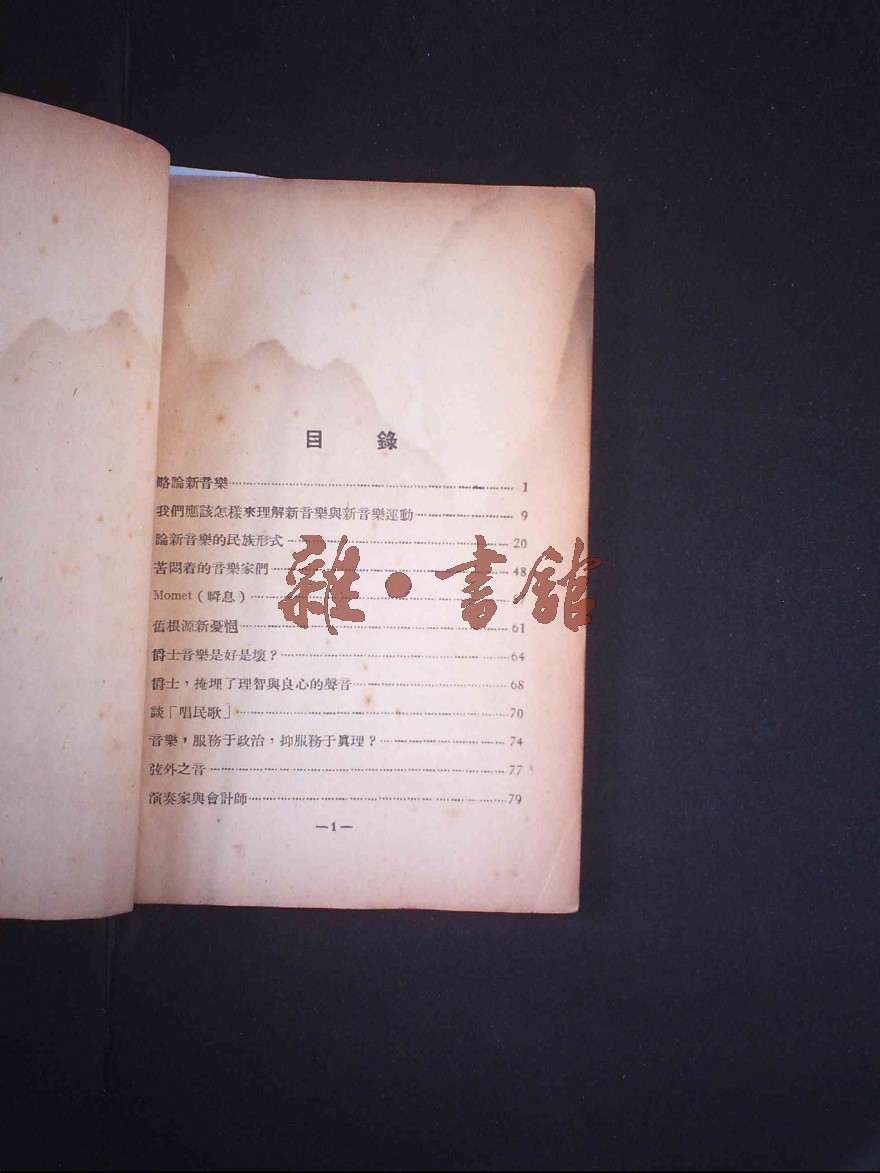 目錄
略論新音樂 1
我們應該怎樣來理解新音樂與新音樂運動 9
論新音樂的民族形式 20
苦悶着的音樂家們 48
Momet(瞬息)
舊根源新憂悒 61
爵士音樂是好是壞? 64
爵士,掩埋了理智與良心的聲音 68
談「唱民歌」 70
音樂,服務于政治,抑服務于眞理? 74
弦外之音 77
演奏家與會計師 79
—1—
雜·書館